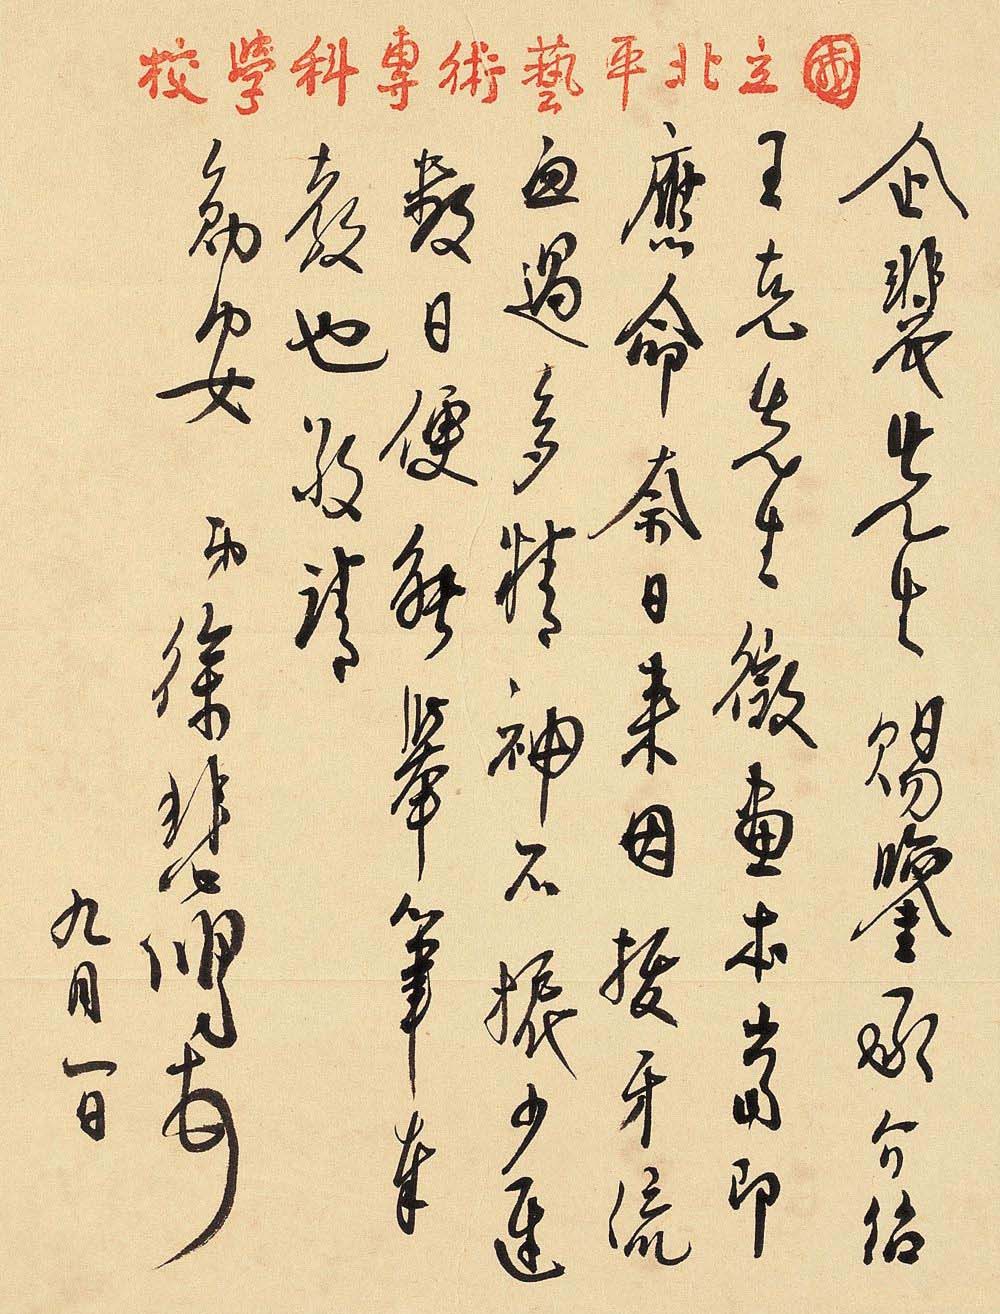 國立北平藝術專科學校
企裴先生賜鑒承介紹
王克先生徵畫本當即
應命奈日來因拔牙流
血過多精神不振少遲
數日便能舉筆奉
教也敬請
勛安
弟徐悲鴻頓首
九月一日